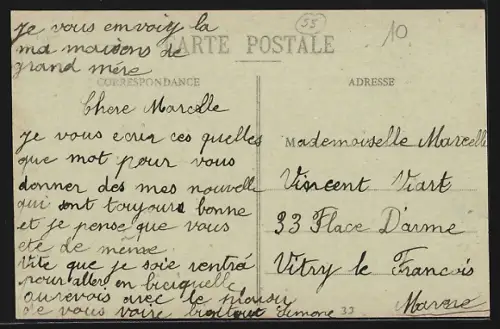 je vous envoiy la
ma maisons de
grand mère
CARTE POSTALE
55
10
CORRESPONDANCE
ADRESSE
Chere Marcelle
je vous ecrir ces quelles
que mot pour vous
donner des mes nouvelle
qui sont toujours bonne
et je pense que vous
ete de même.
Vite que je soie rentré
pour aller en biciquelle
aurevois avec le plaisir
de vous voire bientout Simone
33
Mademoiselle Marcelle
Vincent Viart
33 Place D'arme
Vitry le Francois
Marne